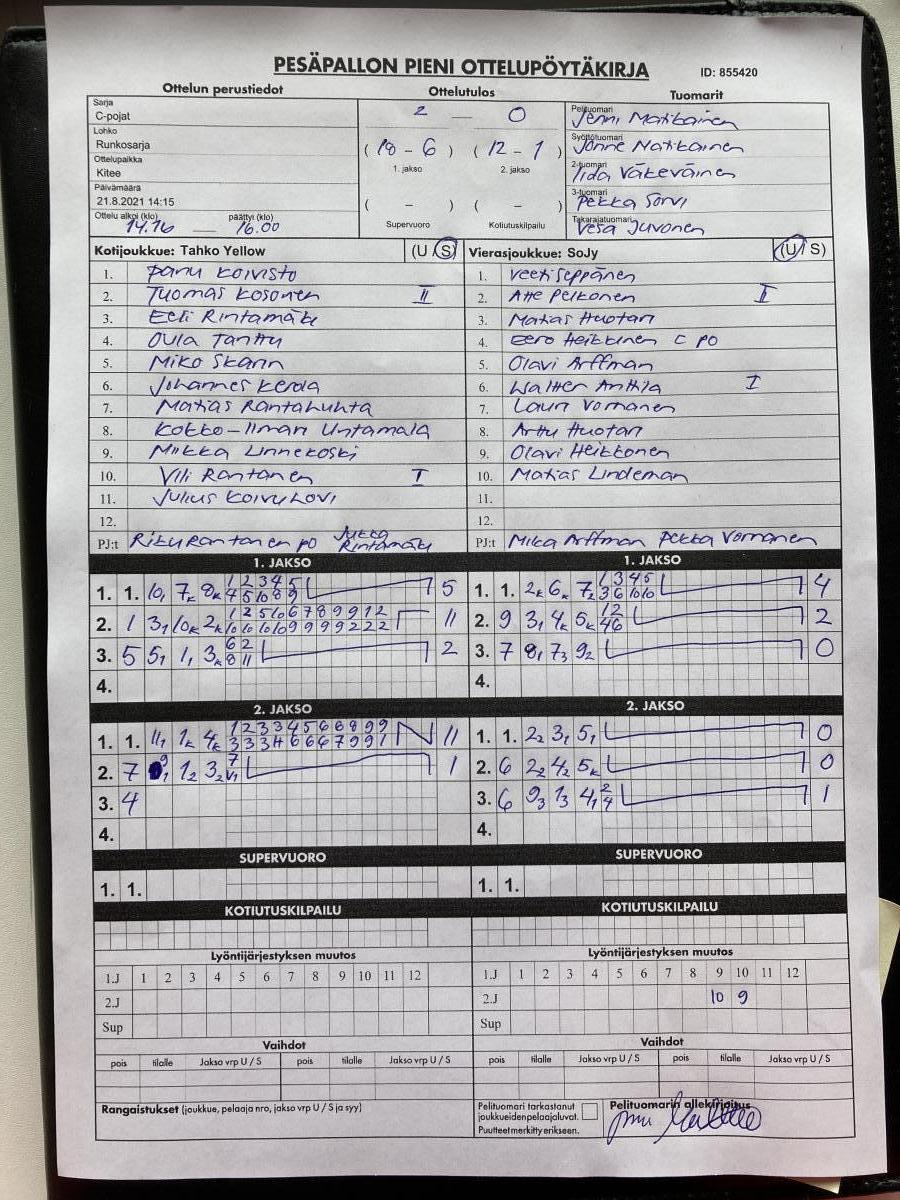 PESÄPALLON PIENI OTTELUPÖYTÄKIRJA
ID: 855420
Ottelun perustiedot
Ottelutulos
Tuomarit
Sarja
C-pojat
Lohko
Runkosarja
Ottelupaikka
Kitee
Päivämäärä
21.8.2021 14:15
Ottelu alkoi (klo) päättyi (klo)
14.16 — 16.00
2 — 0
( 18 - 6 ) ( 12 - 1 )
1. jakso 2. jakso
( - ) ( - )
Supervuoro Kotiutuskilpailu
Pelituomari
Jenni Matikainen
Syöttötuomari
Jonne Matikainen
2-tuomari
Iida Väkeväinen
3-tuomari
Pekka Sorvi
Takarajatuomari
Vesa Juvonen
Kotijoukkue: Tahko Yellow (U S)
1. Panu Koivisto
2. Tuomas Kosonen II
3. Eeli Rintamäki
4. Oula Tanttu
5. Miko Skarin
6. Johannes Kerola
7. Matias Rantahuhta
8. Kokko-Ilmari Untamala
9. Miikka Linnekoski
10. Vili Rantanen I
11. Julius Koivukovi
12.
PJ:t Riku Rantanen PO Jukka Rintamäki
Vierasjoukkue: SoJy (U / S)
1. Veeti Seppänen
2. Atte Pelkonen II
3. Matias Huotari
4. Eero Heikkinen C PO
5. Olavi Arffman
6. Waltter Anttila I
7. Lauri Vornanen
8. Arttu Huotari
9. Olavi Heikkonen
10. Matias Lindeman
11.
12.
PJ:t Mika Arffman Pekka Vornanen
1. JAKSO
1. 1. 10, 7K 8K 5
2. 1 3, 10K 2K 11
3. 5 5, 1, 3K 2
4.
1. JAKSO
1. 1. 2K 6K 7 4
2. 9 3, 4K 5K 2
3. 7 8, 7 9 0
4.
2. JAKSO
1. 1. 11, 1K 4K 11
2. 7 9 1 3 1
3. 4
4.
2. JAKSO
1. 1. 2 3 5 0
2. 6 2 4 5K 0
3. 6 9 1 4 1
4.
SUPERVUORO
1. 1.
SUPERVUORO
1. 1.
KOTIUTUSKILPAILU
KOTIUTUSKILPAILU
Lyöntijärjestyksen muutos
1.J 1 2 3 4 5 6 7 8 9 10 11 12
2.J
Sup
Lyöntijärjestyksen muutos
1.J 1 2 3 4 5 6 7 8 9 10 11 12
2.J 10 9
Sup
Vaihdot
pois tilalle Jakso vrp U / S pois tilalle Jakso vrp U / S
Vaihdot
pois tilalle Jakso vrp U / S pois tilalle Jakso vrp U / S
Rangaistukset (joukkue, pelaaja nro, jakso vrp U / S ja syy)
Pelituomari tarkastanut
joukkueiden pelaajaluvat.
Puutteet merkitty erikseen.
Pelituomarin allekirjoitus